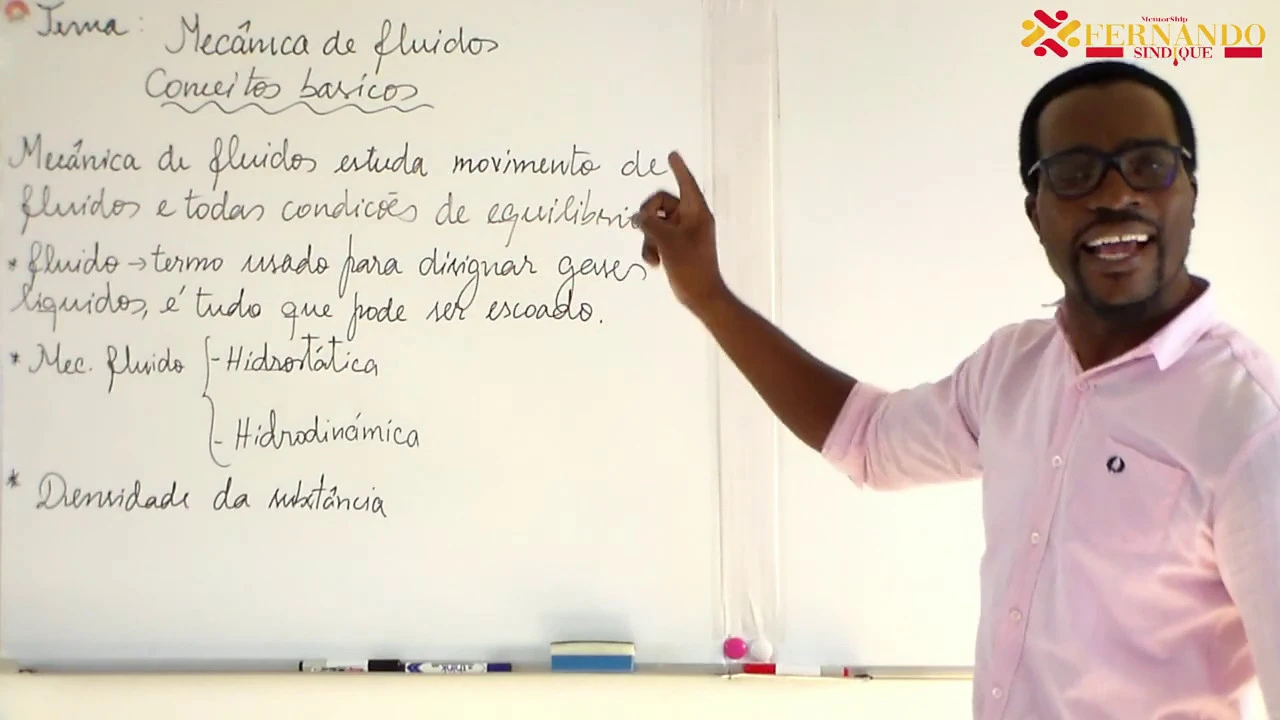 Tema: Mecânica de fluidos
Conceitos basicos
Mecânica de fluidos estuda movimento de
fluidos e todas condicões de equilibrio
* fluido → termo usado para disignar gases
líquidos, é tudo que pode ser escoado.
* Mec. fluido { - Hidrostática
- Hidrodinâmica
* Densidade da substância
MentorShip
FERNANDO
SINDIQUE